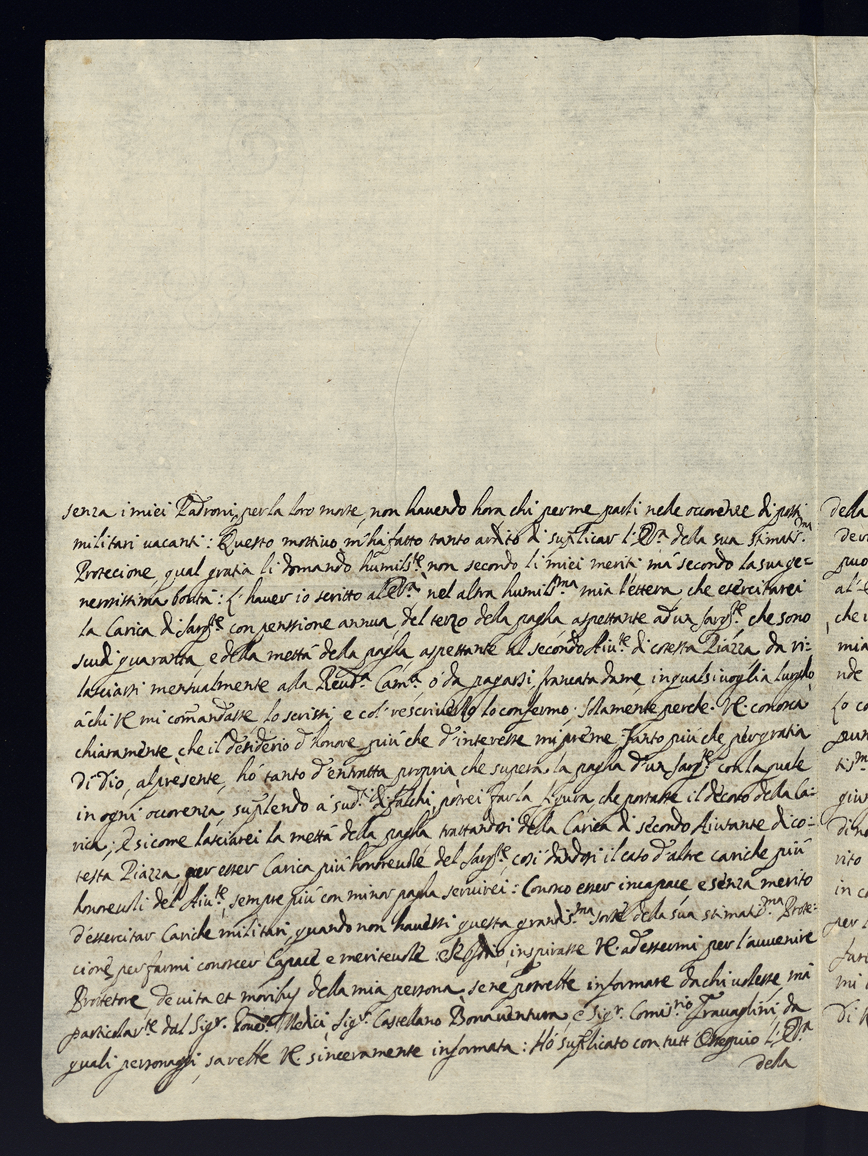 senza i miei Padroni, per la loro morte, non havendo hora chi per me parli nelle occorenze di posti
militari vacanti: Questo mottivo m'ha fatto tanto ardito di suplicar l'E.V.ra della sua stimatis.ma
Protecione, qual gratia li domando humils.te non secondo li miei meriti mà secondo la sua ge=
nerosissima bontà: L'haver io scritto all'E.V.ra nel altra humilis.ma mia lettera, che esercitarei
la Carica di Sarg.te con penssione annua del terzo della pagha aspettante ad un Sarg.te, che sono
scudi quaranta, e della mettà della pagha aspettante al secondo Aiu.te di cotesta Piazza, da ri=
lasciarsi mensualmente alla Reud.a Cam.ra o' da pagarsi, francata da me, in qualsivoglia luogho
à chi VE mi comandasse lo scrissi, e col rescriverlo lo confermo; solamente perche VE. conosca
chiaramente, che il desiderio d'honore più che d'interesse mi preme. Tanto più che per gratia
di Dio, al presente, hò tanto d'entratta propria, che supera la pagha d'un Sarg.te con la quale
in ogni occorenza, suplendo à sud.ti difalchi, potrei far la figura, che portasse il decoro della Ca=
rica; E sicome lasciarei la mettà della pagha, trattandosi della Carica di secondo Aiutante di co=
testa Piazza, per esser Carica più honorevole del Sarg.te, così dandosi il caso d'altre cariche più
honorevoli del Aiu.te, sempre più con minor pagha servirei: Conosco esser incapace e senza merito
d'essercitar Cariche militari, quando non havessi questa grandis.ma sorte della sua stimatis.ma Prote=
cione, per farmi conoscer Capace e meritevole: E se Iddio inspirasse VE. ad essermi per l'avvenire
Protetore, de vita et moribus della mia persona, se ne potrebbe informare da chi volesse, mà
particolar.te dal Sig.r Gov.re Medici, Sig.r Castellano Bonaventura, e Sig.r Comis.rio Travaglini, da
quali personaggi, sarebbe VE. sinceramente informata: Hò suplicato con tutt'Ossequio L'E.V.ra
della